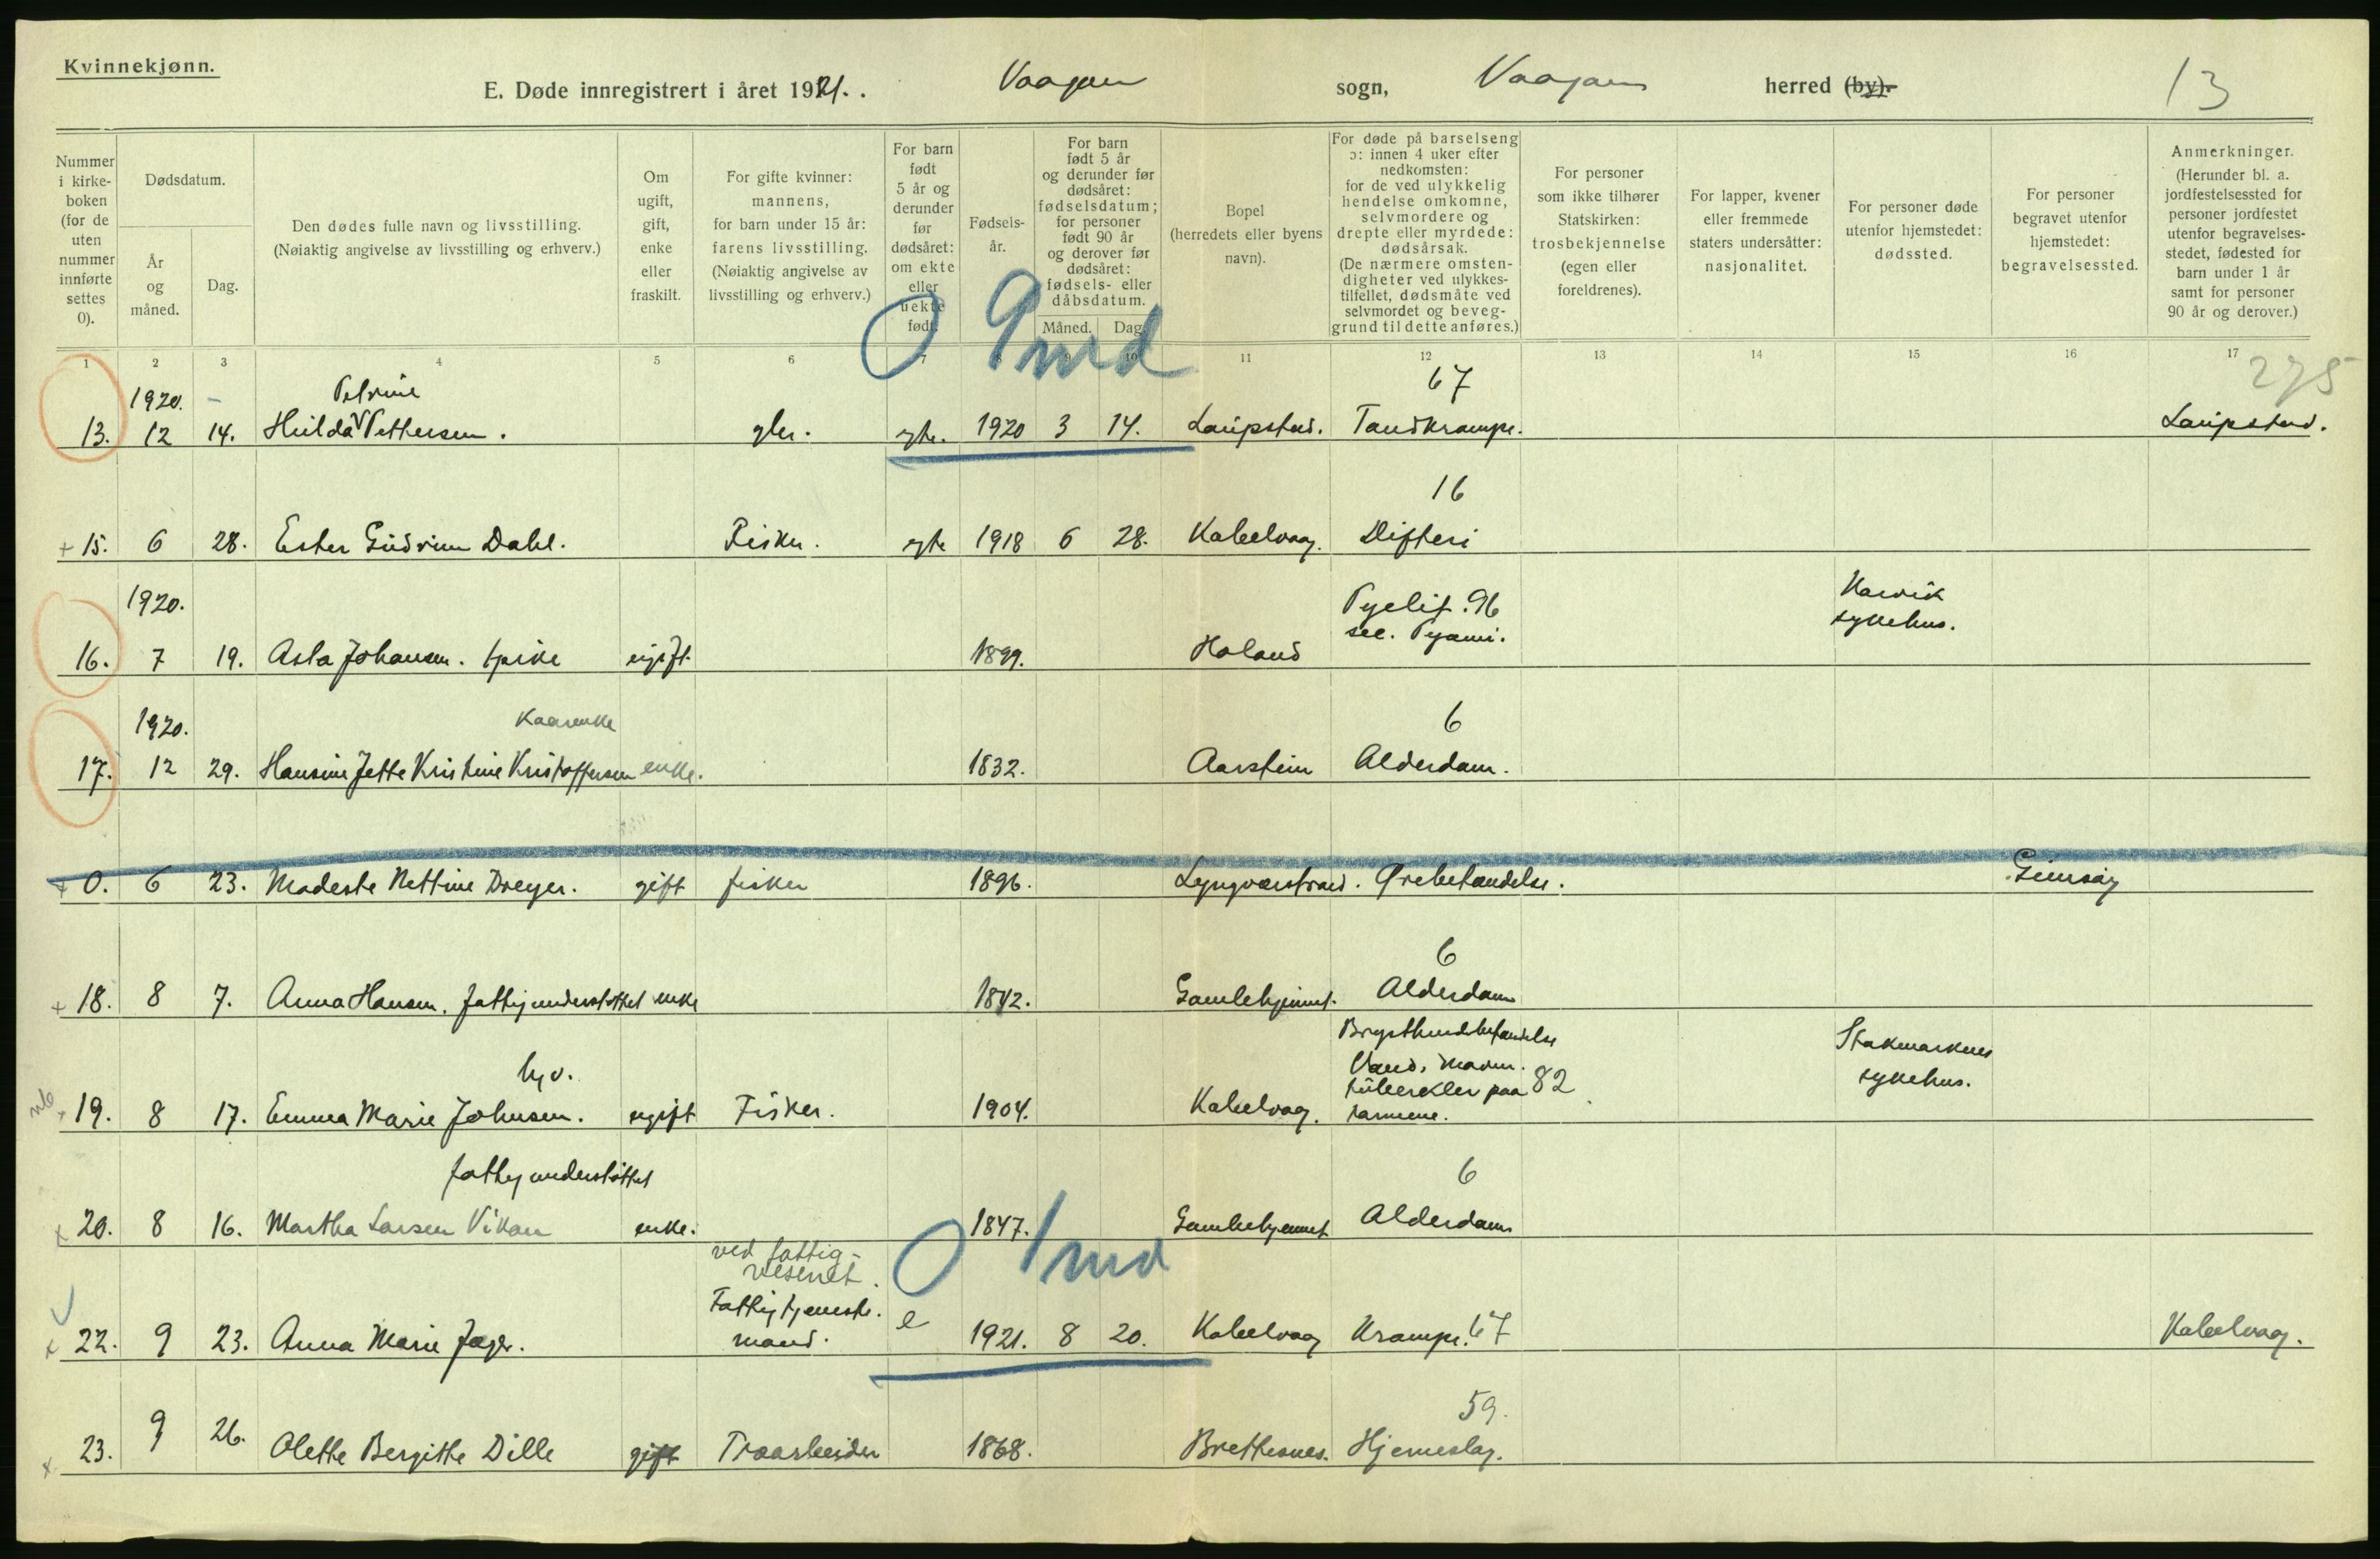 Kvinnekjønn.
E. Døde innregistrert i året 1921. . Vaagan sogn, Vaagan herred (by). 13
Nummer i kirke-boken (for de uten nummer innførte settes 0).
Dødsdatum.
År og måned.
Dag.
Den dødes fulle navn og livsstilling. (Nøiaktig angivelse av livsstilling og erhverv.)
Om ugift, gift, enke eller fraskilt.
For gifte kvinner: mannens, for barn under 15 år: farens livsstilling. (Nøiaktig angivelse av livsstilling og erhverv.)
For barn født 5 år og derunder før dødsåret: om ekte eller uekte født.
Fødsels-år.
For barn født 5 år og derunder før dødsåret: fødselsdatum; for personer født 90 år og derover før dødsåret: fødsels- eller dåbsdatum.
Måned. Dag.
Bopel (herredets eller byens navn).
For døde på barselseng ɔ: innen 4 uker efter nedkomsten: for de ved ulykkelig hendelse omkomne, selvmordere og drepte eller myrdede: dødsårsak. (De nærmere omsten-digheter ved ulykkes-tilfellet, dødsmåte ved selvmordet og beveg-grund til dette anføres.)
For personer som ikke tilhører Statskirken: trosbekjennelse (egen eller foreldrenes).
For lapper, kvener eller fremmede staters undersåtter: nasjonalitet.
For personer døde utenfor hjemstedet: dødssted.
For personer begravet utenfor hjemstedet: begravelsessted.
Anmerkninger. (Herunder bl. a. jordfestelsessted for personer jordfestet utenfor begravelses-stedet, fødested for barn under 1 år samt for personer 90 år og derover.)
0 9 md
1 2 3 4 5 6 7 8 9 10 11 12 13 14 15 16 17
275
1920. - Petrine 67
13. 12 14. Hulda Pettersen. gbr. egte. 1920 3 14. Laupstad. Tandkrampe. Laupstad.
16
+ 15. 6 28. Ester Gudrun Dahl. Fisker. egte 1918 6 28. Kabelvaag. Difteri
1920. Pyelit. 96 Narvik
sec. Pyæmi. sykehus.
16. 7 19. Asta Johansen. pike ugift 1899. Holand
1920. Kaarenke 6
17. 12 29. Hansine Jette Kristine Kristoffersen enke. 1832. Aarstein Alderdom.
+ 0. 6 23. Modeste Nettine Dreyer. gift fisker 1896. Lyngværstrand. Ørebetændelse. Gimsøy
6
+ 18. 8 7. Anna Hansen. fattigunderstøttet enke 1842. Gamlehjemmet. Alderdom
Brysthindebetændelse Stokmarknes
hv. Vand, i maven. sykehus.
tuberkler paa 82
+ 19. 8 17. Emma Marie Johnsen. ugift Fisker. 1904. Kabelvaag. tarmene.
fattigunderstøttet 6
x 20. 8 16. Martha Larsen Vikan enke. 1847. Gamlehjemmet Alderdom
ved fattig-
vesenet. 0 1 md
Fattigtjeneste.
x 22. 9 23. Anna Marie Jager. mand. e 1921. 8 20. Kabelvaag Krampe. 67 Kabelvaag.
59.
x 23. 9 26. Olette Bergitte Dille gift Træarbeider 1868. Brettesnes. Hjerneslag.